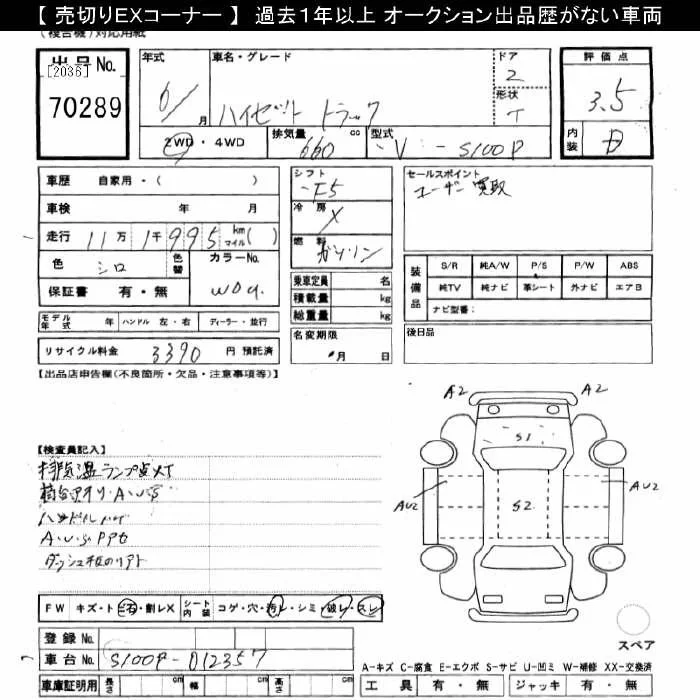 【 売切りEXコーナー 】 過去1年以上 オークション出品歴がない車両
(複合機)対応用紙
出品No. [2036] 70289
年式 6/ 月
車名・グレード ハイゼット トラック
ドア 2
形状 T
評価点 3.5
内装 D
2WD・4WD
排気量 660 cc
型式 V-S100P
車歴 自家用・( )
車検 年 月
走行 11万 1千 995 km マイル( )
色 シロ 色替 カラーNo. W09
保証書 有・無
シフト F5
冷房 X
燃料 ガソリン
乗車定員 名
積載量 kg
総重量 kg
セールスポイント ユーザー買取
装備品 S/R 純A/W P/S P/W ABS
純TV 純ナビ 革シート 外ナビ エアB
ナビ型番:
モデル年式 年 ハンドル 左・右 ディーラー・並行
名変期限 月 日
後日品
リサイクル料金 3390 円 預託済
【出品店申告欄(不良箇所・欠品・注意事項等)】
A2 A2
S1
AU2 S2 AU2
【検査員記入】
排気温ランプ点灯
荷台 ・A・U・S
ハンドル
A・U・S PPG
ダッシュ板
FW キズ・ト ビ石・割レX シート内装 コゲ・穴・汚レ・シミ・破レ・スレ
登録No.
車台No. S100P-012357
車庫証明用 長さ cm 幅 cm 高さ cm
スペア
A-キズ C-腐食 E-エクボ S-サビ U-凹ミ W-補修 XX-交換済
工具 有・無 ジャッキ 有・無